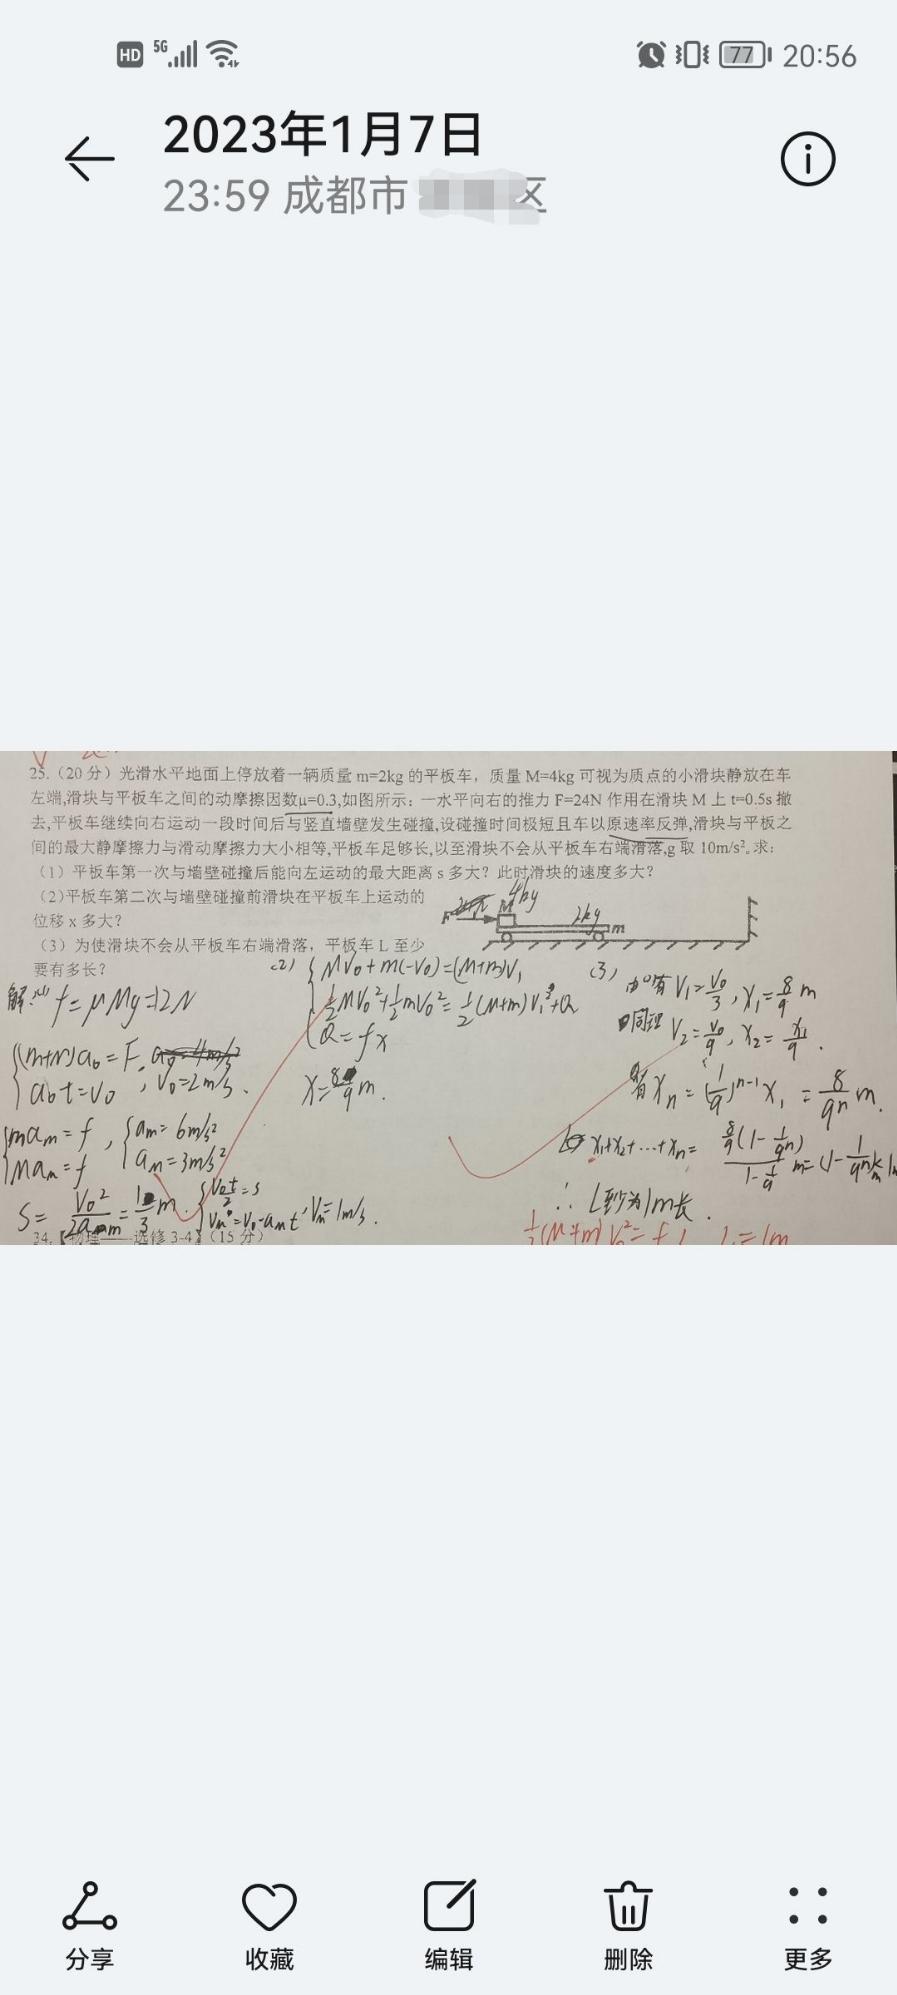 HD 5G 77 20:56
2023年1月7日
23:59 成都市 区
25.（20 分）光滑水平地面上停放着一辆质量 m=2kg 的平板车，质量 M=4kg 可视为质点的小滑块静放在车
左端,滑块与平板车之间的动摩擦因数μ=0.3,如图所示：一水平向右的推力 F=24N 作用在滑块 M 上 t=0.5s 撤
去,平板车继续向右运动一段时间后与竖直墙壁发生碰撞,设碰撞时间极短且车以原速率反弹,滑块与平板之
间的最大静摩擦力与滑动摩擦力大小相等,平板车足够长,以至滑块不会从平板车右端滑落,g 取 10m/s²。求：
（1）平板车第一次与墙壁碰撞后能向左运动的最大距离 s 多大？此时滑块的速度多大？
（2)平板车第二次与墙壁碰撞前滑块在平板车上运动的
位移 x 多大？
（3）为使滑块不会从平板车右端滑落，平板车 L 至少
要有多长？
F M 4kg 2kg m
解:(1) f=μMg=12N
(m+M)a₀=F,
a₀t=v₀, v₀=2m/s.
mam=f, am=6m/s²
Mam=f aM=3m/s²
S= V₀²/2am = 1/3 m. V₀t/2=s
Vm=V₀-amt, Vm=1m/s.
(2) MV₀+m(-V₀)=(M+m)V₁
½MV₀²+½mV₀²=½(M+m)V₁²+Q
Q=fx
X=8/9 m.
(3) 由 有 V₁=V₀/3, X₁=8/9 m
同理 V₂=V₀/9, X₂=X₁/9.
Xn=(1/9)ⁿ⁻¹X₁=8/9ⁿ m.
X₁+X₂+…+Xn= 8/9(1-1/9ⁿ)/1-1/9 m=(1-1/9ⁿ)m
∴ L至少为1m长.
½(M+m)V₀²=fL L=1m
34.【物理——选修 3-4】（15 分）
分享
收藏
编辑
删除
更多